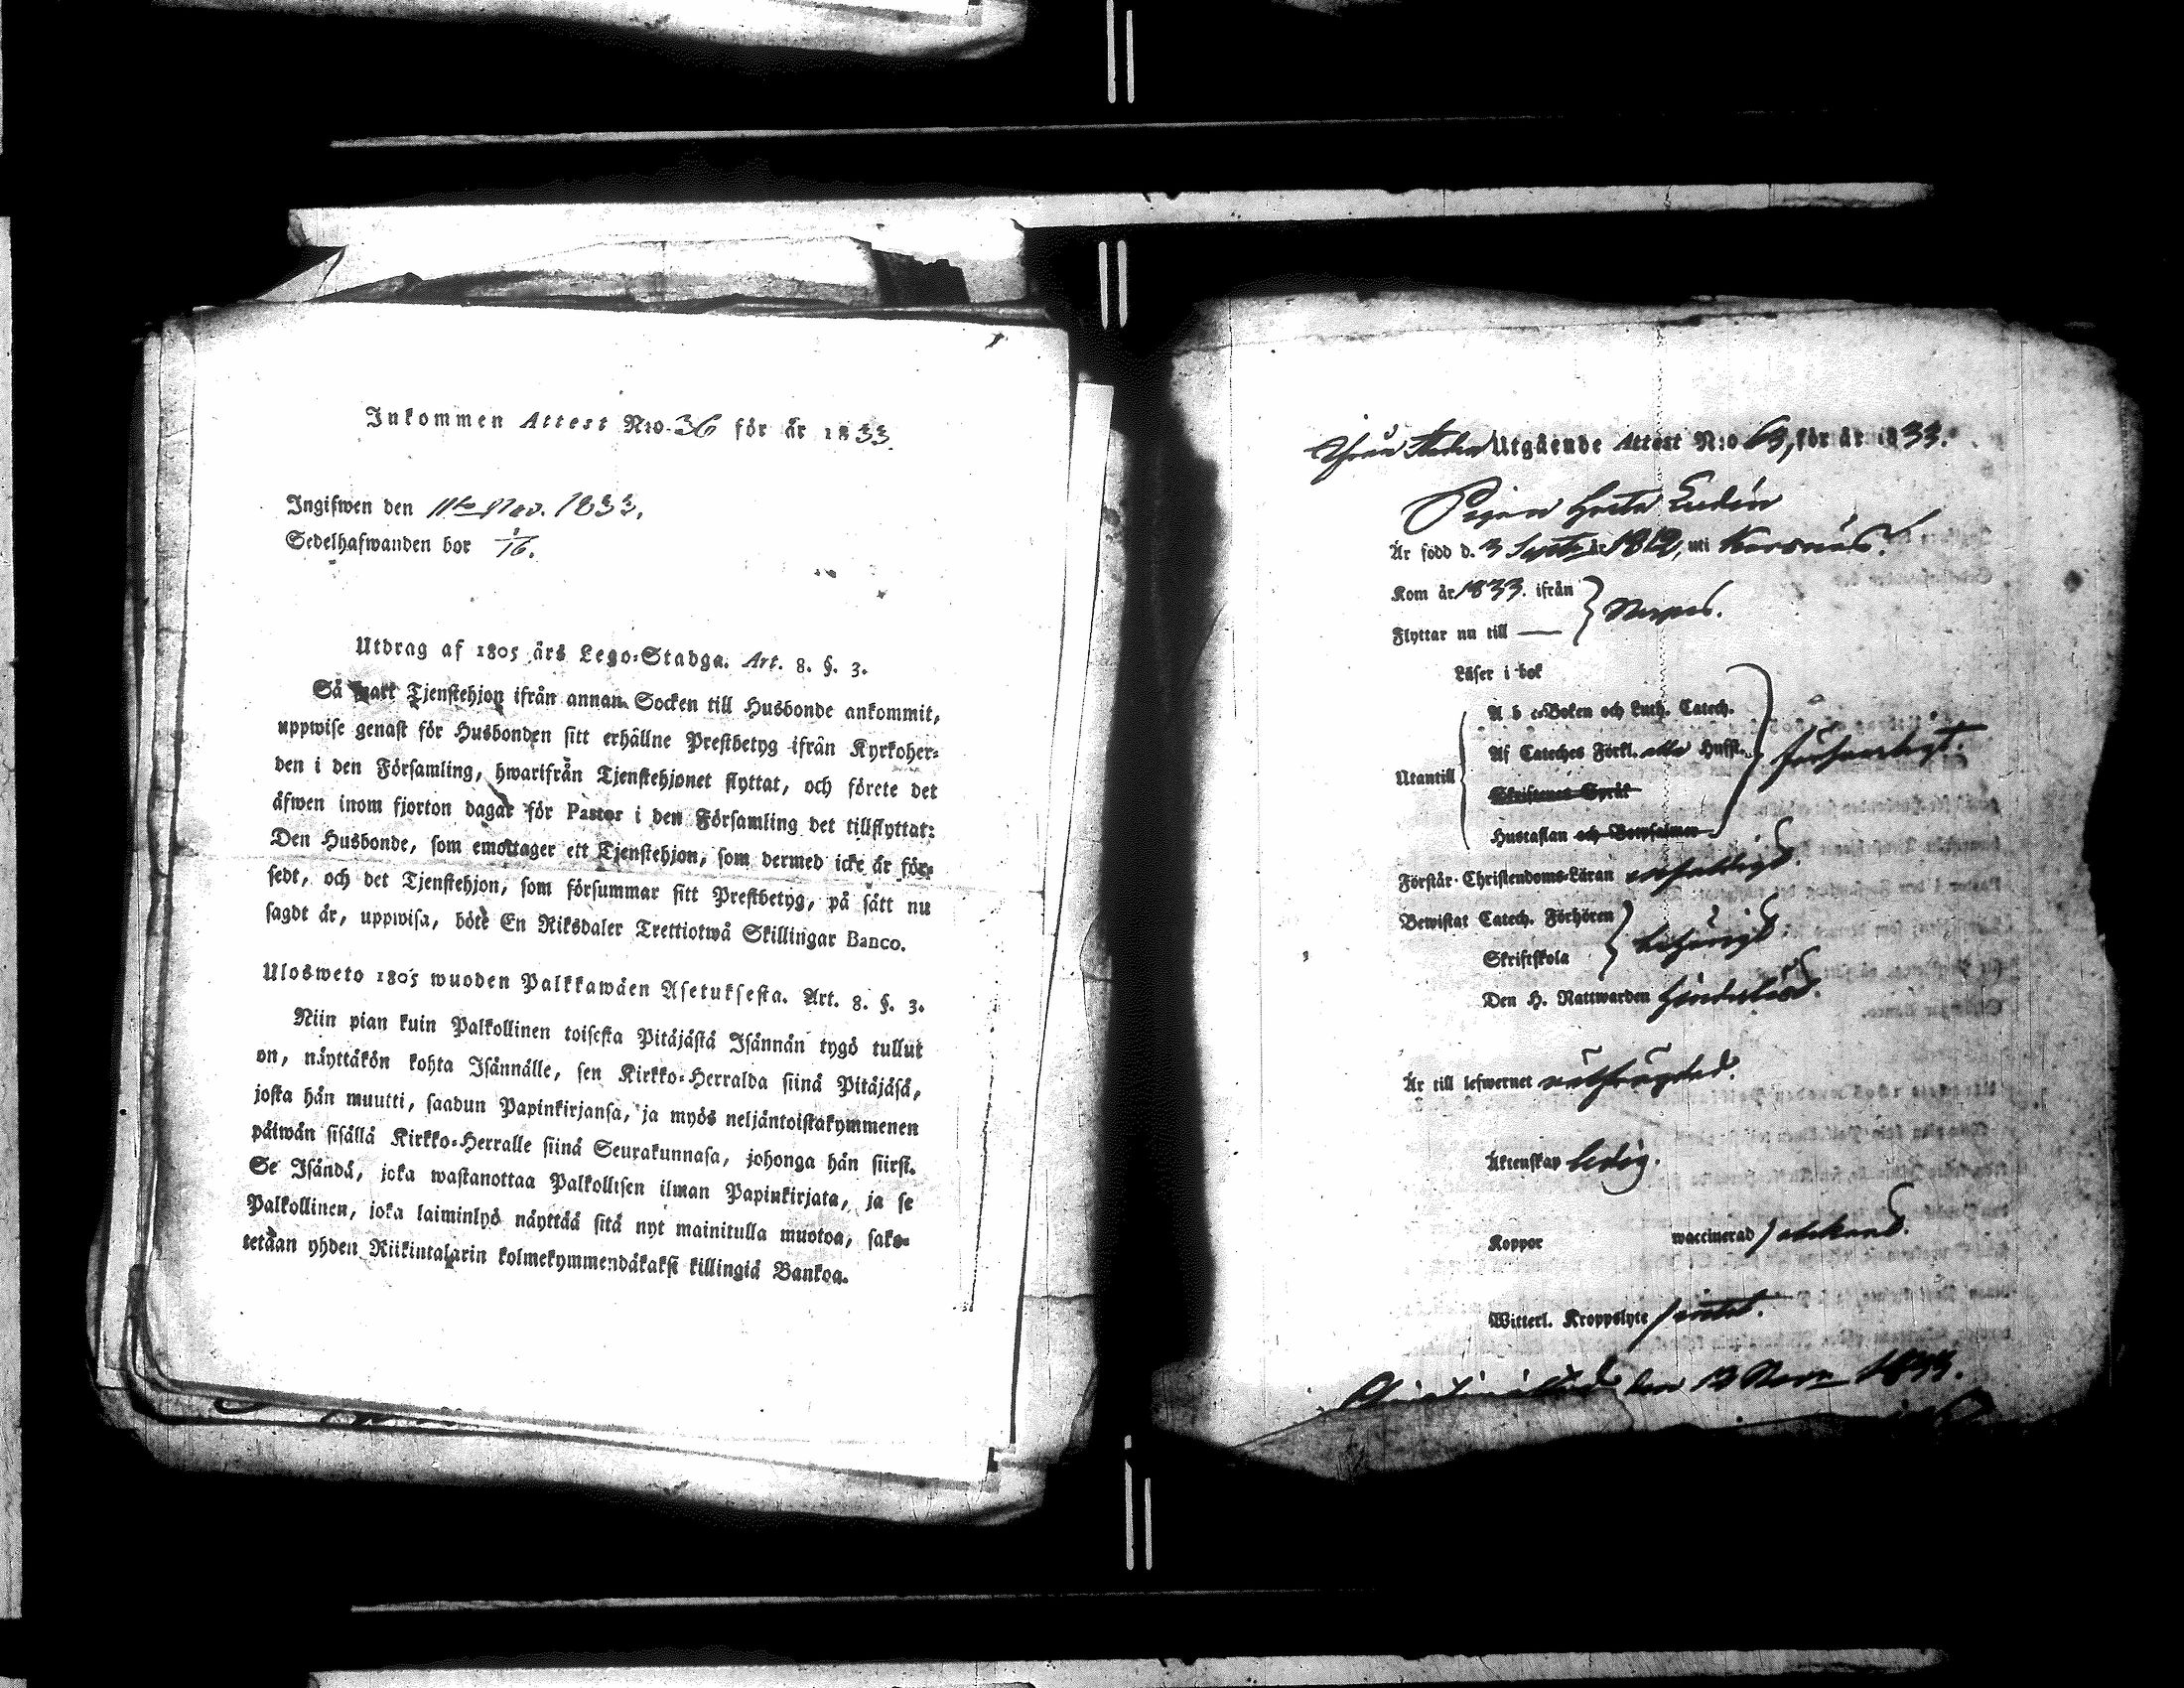 Inkommen Attest N:o 36 för år 1833.
Ingifwen den 11te Nov. 1833.
Sedelhafwanden bor 1/16.
Utdrag af 1805 års Lego-Stadga. Art. 8. §. 3.
Så snart Tjenstehjon ifrån annan Socken till Husbonde ankommit,
uppwise genast för Husbonden sitt erhållne Prestbetyg ifrån Kyrkoher-
den i den Församling, hwarifrån Tjenstehjonet flyttat, och förete det
äfwen inom fjorton dagar för Pastor i den Församling det tillflyttat:
Den Husbonde, som emottager ett Tjenstehjon, som dermed icke är för-
sedt, och det Tjenstehjon, som försummar sitt Prestbetyg, på sätt nu
sagdt är, uppwisa, böte En Riksdaler Trettiotwå Skillingar Banco.
Ulosweto 1805 wuoden Palkkawäen Asetuksesta. Art. 8. §. 3.
Niin pian kuin Palkollinen toisesta Pitäjästä Isännän tygö tullut
on, näyttäkön kohta Isännälle, sen Kirkko-Herralda siinä Pitäjäsä,
josta hän muutti, saadun Papinkirjansa, ja myös neljäntoistakymmenen
päiwän sisällä Kirkko-Herralle siinä Seurakunnasa, johonga hän siirst.
Se Isändä, joka wastanottaa Palkollisen ilman Papinkirjata, ja se
Palkollinen, joka laiminlyö näyttää sitä nyt mainitulla muotoa, sako-
tetaan yhden Riikintalarin kolmekymmendäkaksi killingiä Bankoa.
Utgående Attest N:o 63, för år 1833.
Pigan Greta
Är född d. 3 Septr år 1812, uti Korsnäs.
Kom år 1833. ifrån
Flyttar nu till — Nerpes.
Läser i bok
A b c-Boken och Luth. Catech.
Af Cateches Förkl. alla Hufst.
Utantill försvarligt.
Skriftenes Språk
Hustaflan och Botpsalmer
Förstår Christendoms-Läran
Bewistat Catech. Förhören
Skriftskola
Den H. Nattwarden
Är till lefwernet
Äktenskap ledig.
Koppor waccinerad
Witterl. Kroppslyte
Christinæstad den 12 Novr 1833.